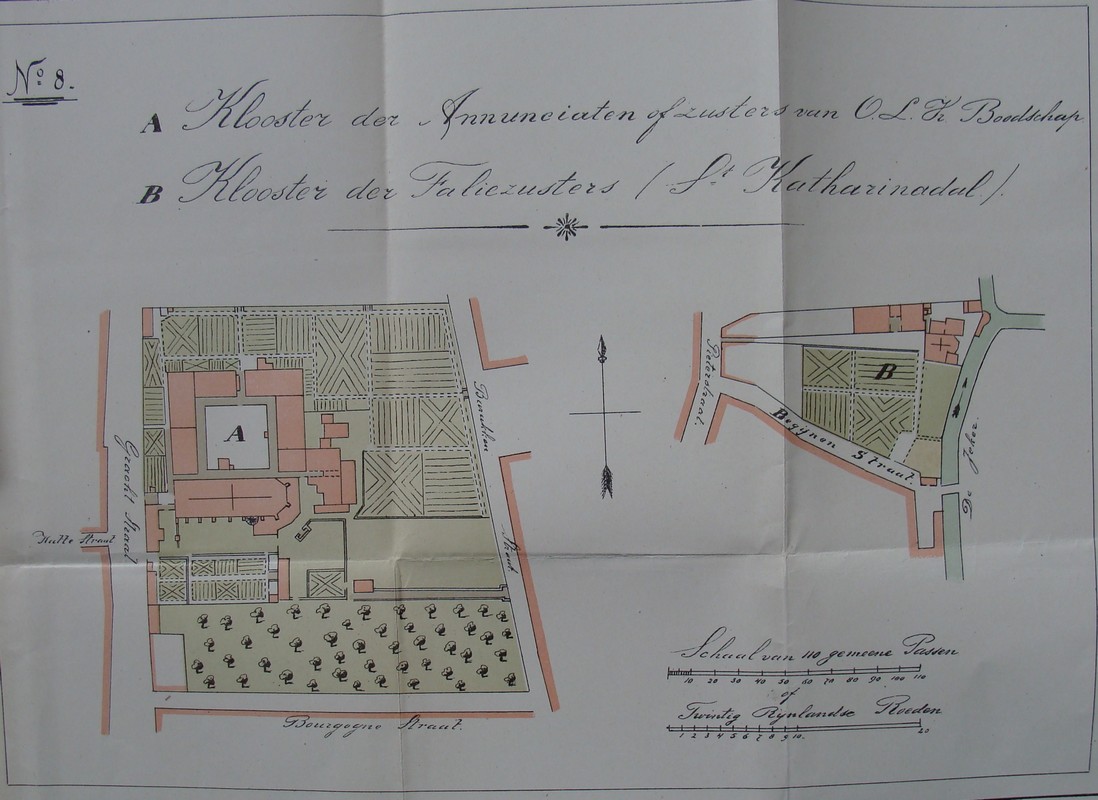 No 8.
A Klooster der Annunciaten of zusters van O. L. V. Boodschap
B Klooster der Faliezusters (St Katharinadal).
A
Gracht Straat
Batte Straat
Beukken Straat
Bourgogne Straat.
Pieterstraat.
B
Begijnen Straat.
De Jeker
Schaal van 110 gemeene Passen
10 20 30 40 50 60 70 80 90 100 110
of
Twintig Rijnlandse Roeden
1 2 3 4 5 6 7 8 9 10. 20